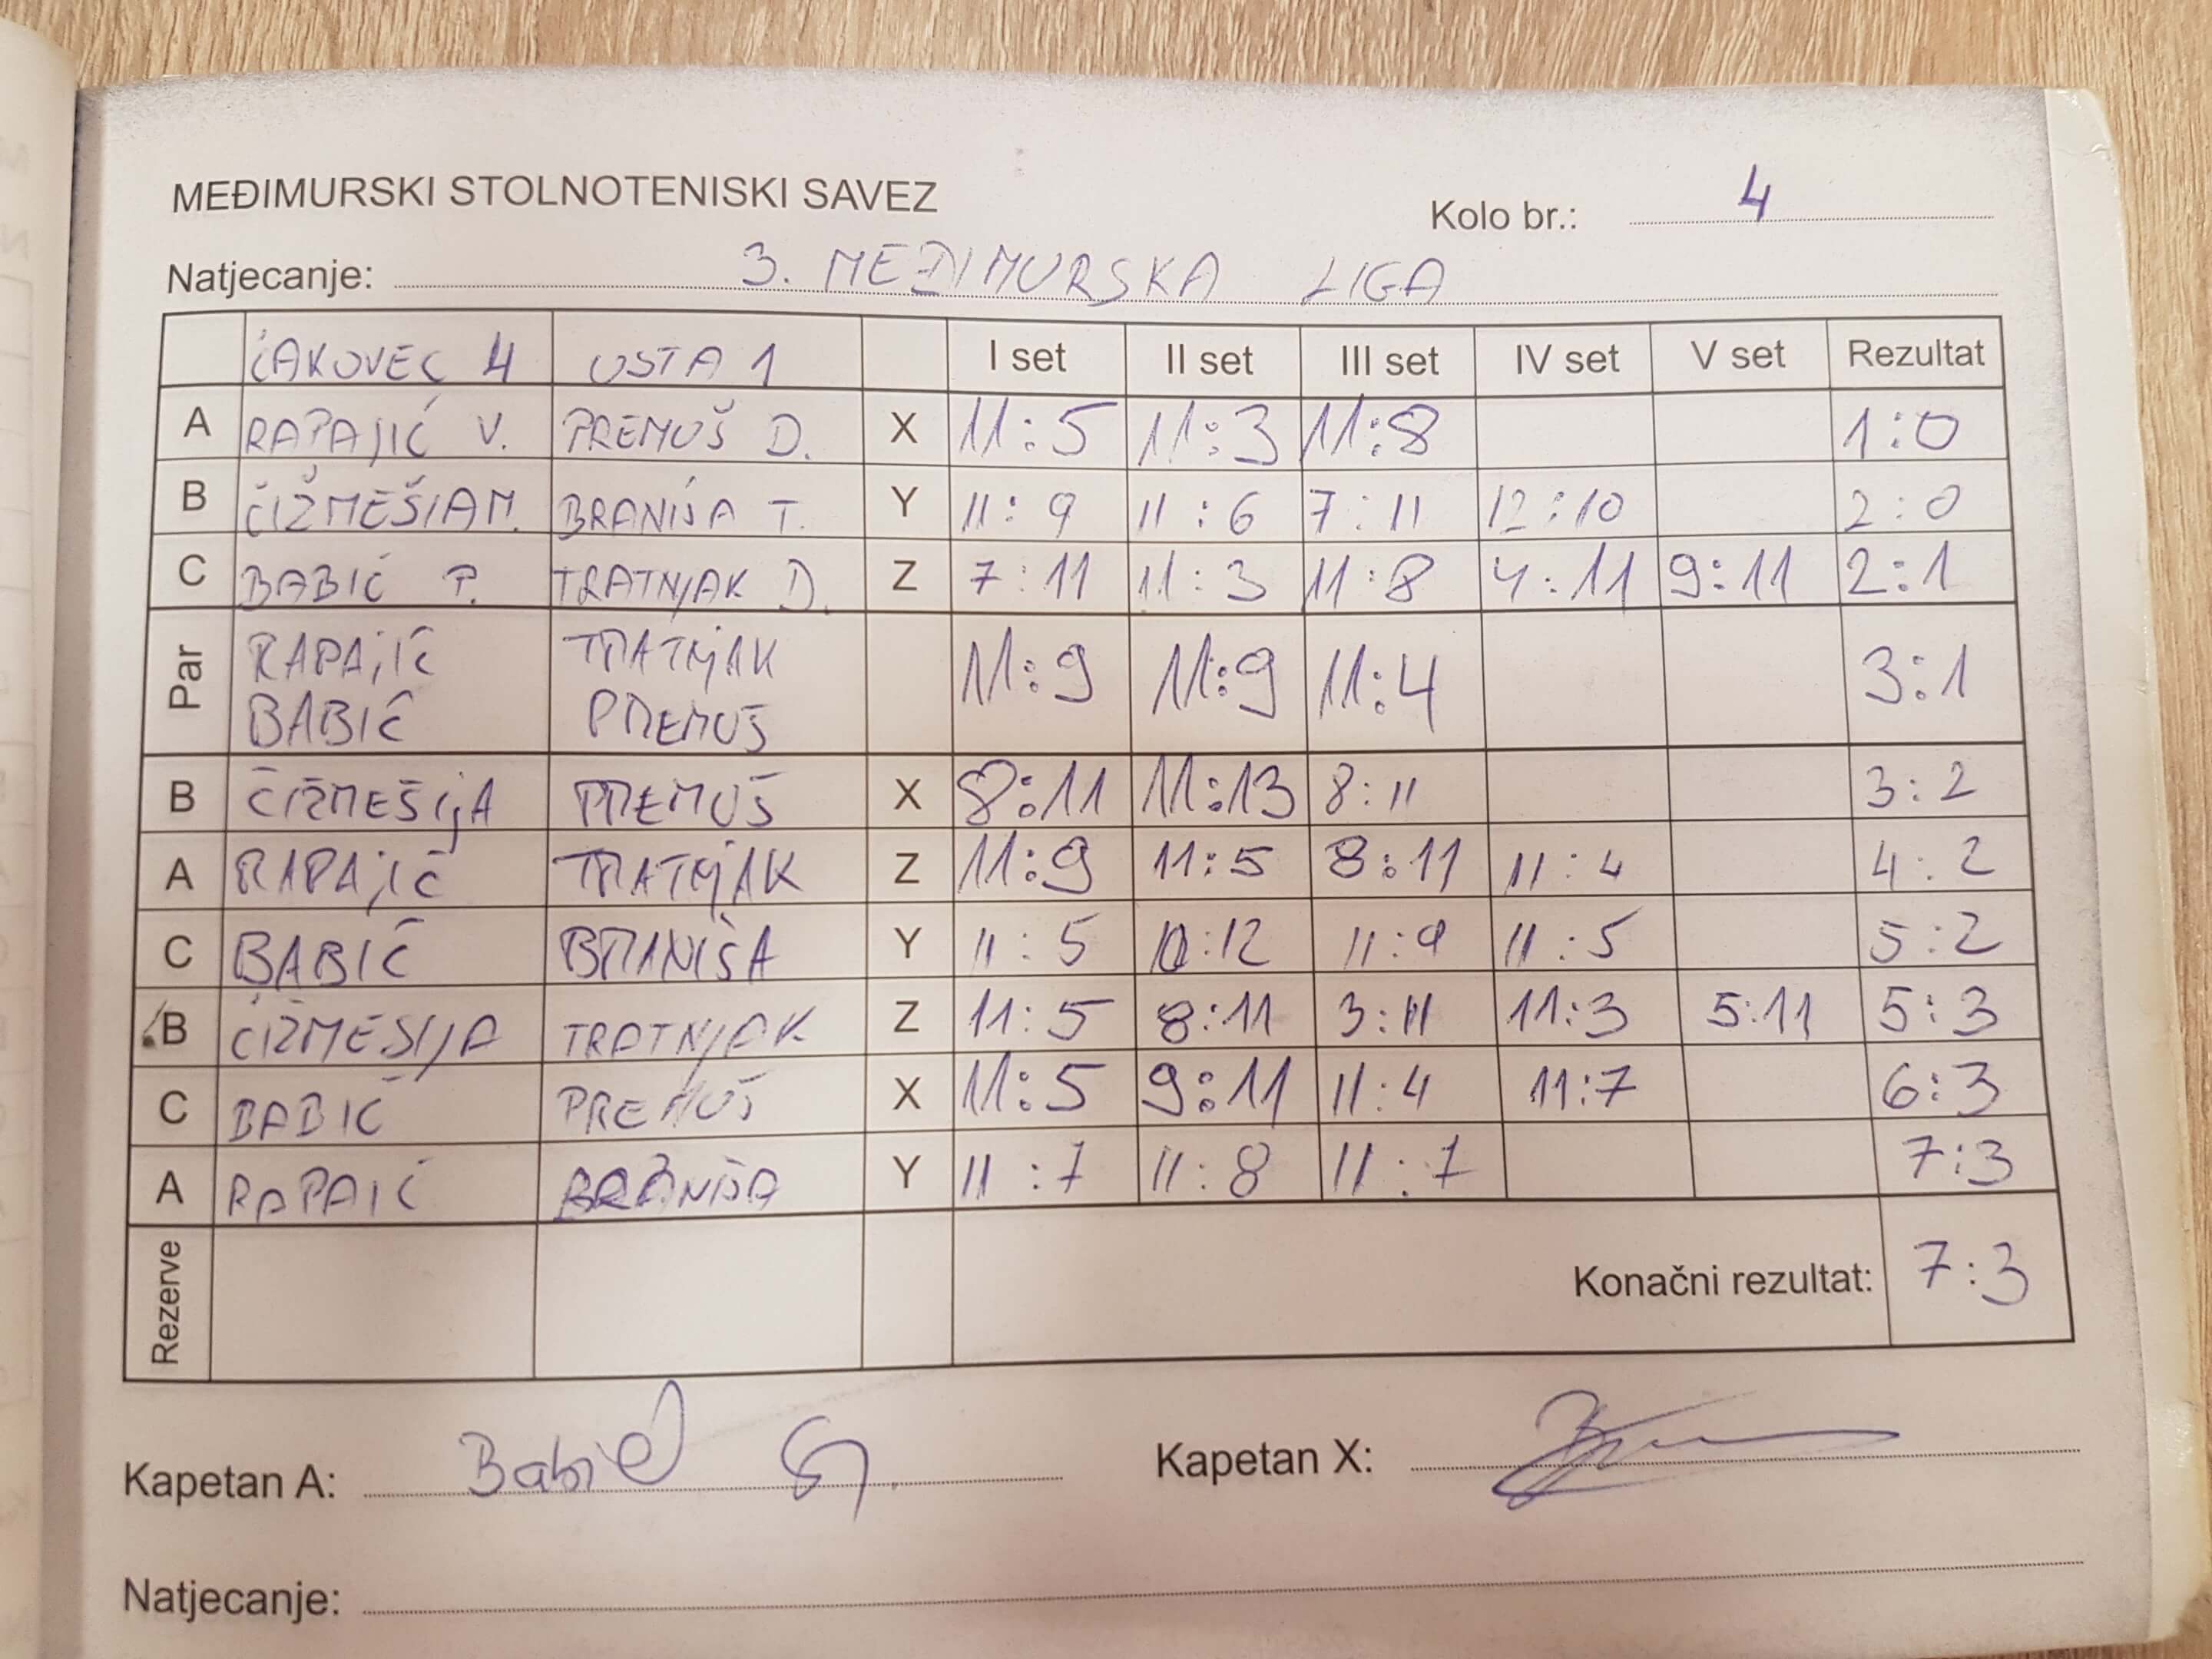 MEĐIMURSKI STOLNOTENISKI SAVEZ
Kolo br.: 4
Natjecanje: 3. MEĐIMURSKA LIGA
ČAKOVEC 4 USTA 1 I set II set III set IV set V set Rezultat
A RAPAJIĆ V. PREMUŠ D. X 11:5 11:3 11:8 1:0
B ČIŽMEŠIJA M. BRANIŠA T. Y 11:9 11:6 7:11 12:10 2:0
C BABIĆ P. TRATNJAK D. Z 7:11 11:3 11:8 4:11 9:11 2:1
Par RAPAJIĆ TRATNJAK 11:9 11:9 11:4 3:1
BABIĆ PREMUŠ
B ČIŽMEŠIJA PREMUŠ X 8:11 11:13 8:11 3:2
A RAPAJIĆ TRATNJAK Z 11:9 11:5 8:11 11:4 4:2
C BABIĆ BRANIŠA Y 11:5 10:12 11:9 11:5 5:2
B ČIŽMEŠIJA TRATNJAK Z 11:5 8:11 3:11 11:3 5:11 5:3
C BABIĆ PREMUŠ X 11:5 9:11 11:4 11:7 6:3
A RAPAIĆ BRANIŠA Y 11:7 11:8 11:7 7:3
Rezerve Konačni rezultat: 7:3
Kapetan A: Babić Kapetan X:
Natjecanje: